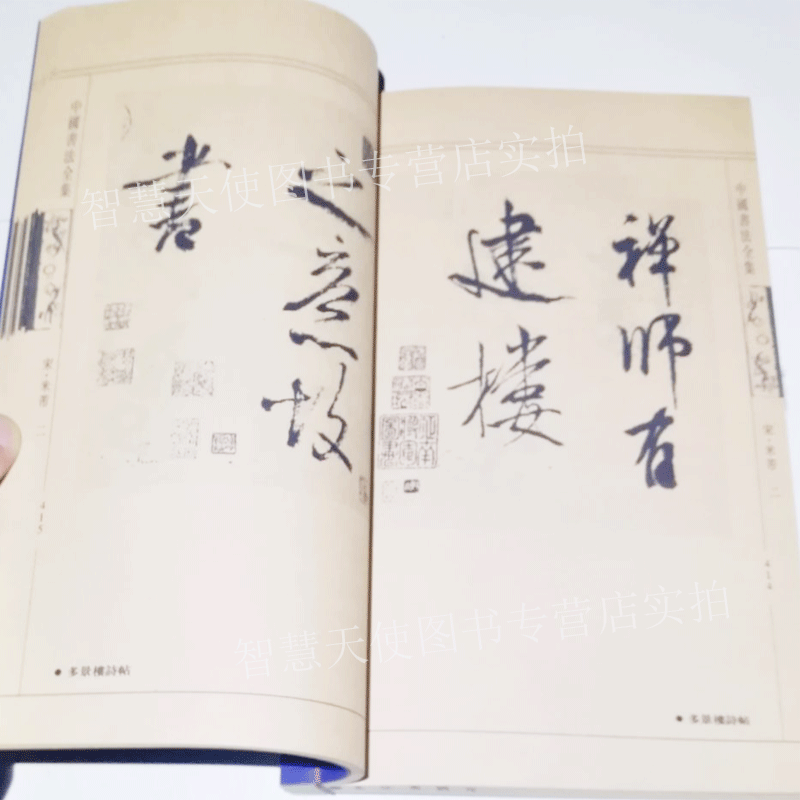 中國書法全集
宋·米芾 二
414
禪師有
建樓
多景樓詩帖
之意故
書
中國書法全集
宋·米芾 二
415
多景樓詩帖
智慧天使图书专营店实拍
智慧天使图书专营店实拍